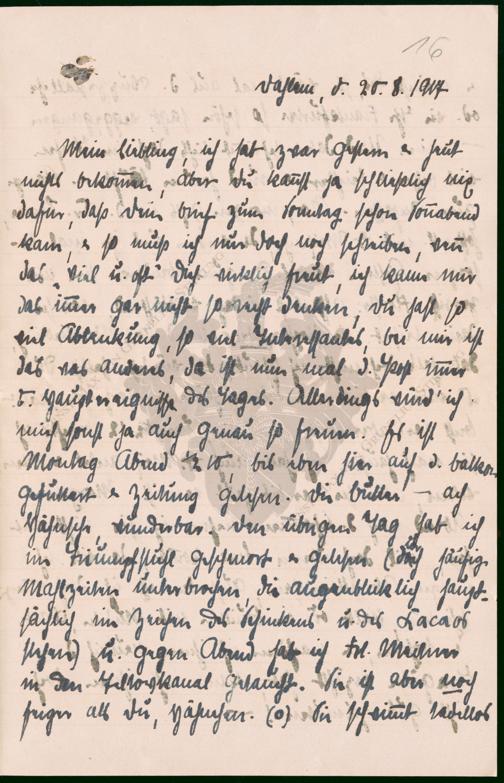 16
Dahlem, d. 20.8.1917
Mein Liebling, ich hab zwar gestern u. heut
nichts bekommen, aber Du kannst ja schließlich nix
dafür, daß Dein Brief zum Sonntag schon Sonnabend
kam, u. so muß ich nur doch noch schreiben, wenn
das „viel u. oft" Dich wirklich freut, ich kann mir
das immer gar nicht so recht denken, Du hast so
viel Ablenkung, so viel Interessantes, bei mir ist
das was anderes: da ist nun mal d. Post immer
d. Hauptereignisse des Tages. Allerdings würd' ich
mich sonst ja auch genau so freuen. Es ist
Montag Abend ½ 10, bis eben hier auf d. Balkon
gefuttert u. Zeitung gelesen. Die Butter — ach
wunderbar. Den übrigen Tag hab ich
im Triumpfstuhl geschmort u. gelesen (durch häufige
Mahlzeiten unterbrochen, die augenblicklich haupt-
sächlich im Zeichen des Schinkens u. des Cacaos
stehen) u. gegen Abend hab ich Frl. Meitner
in den Teltowkanal getaucht. Sie ist aber noch
feiger als Du, (o) Sie schwimmt tadellos